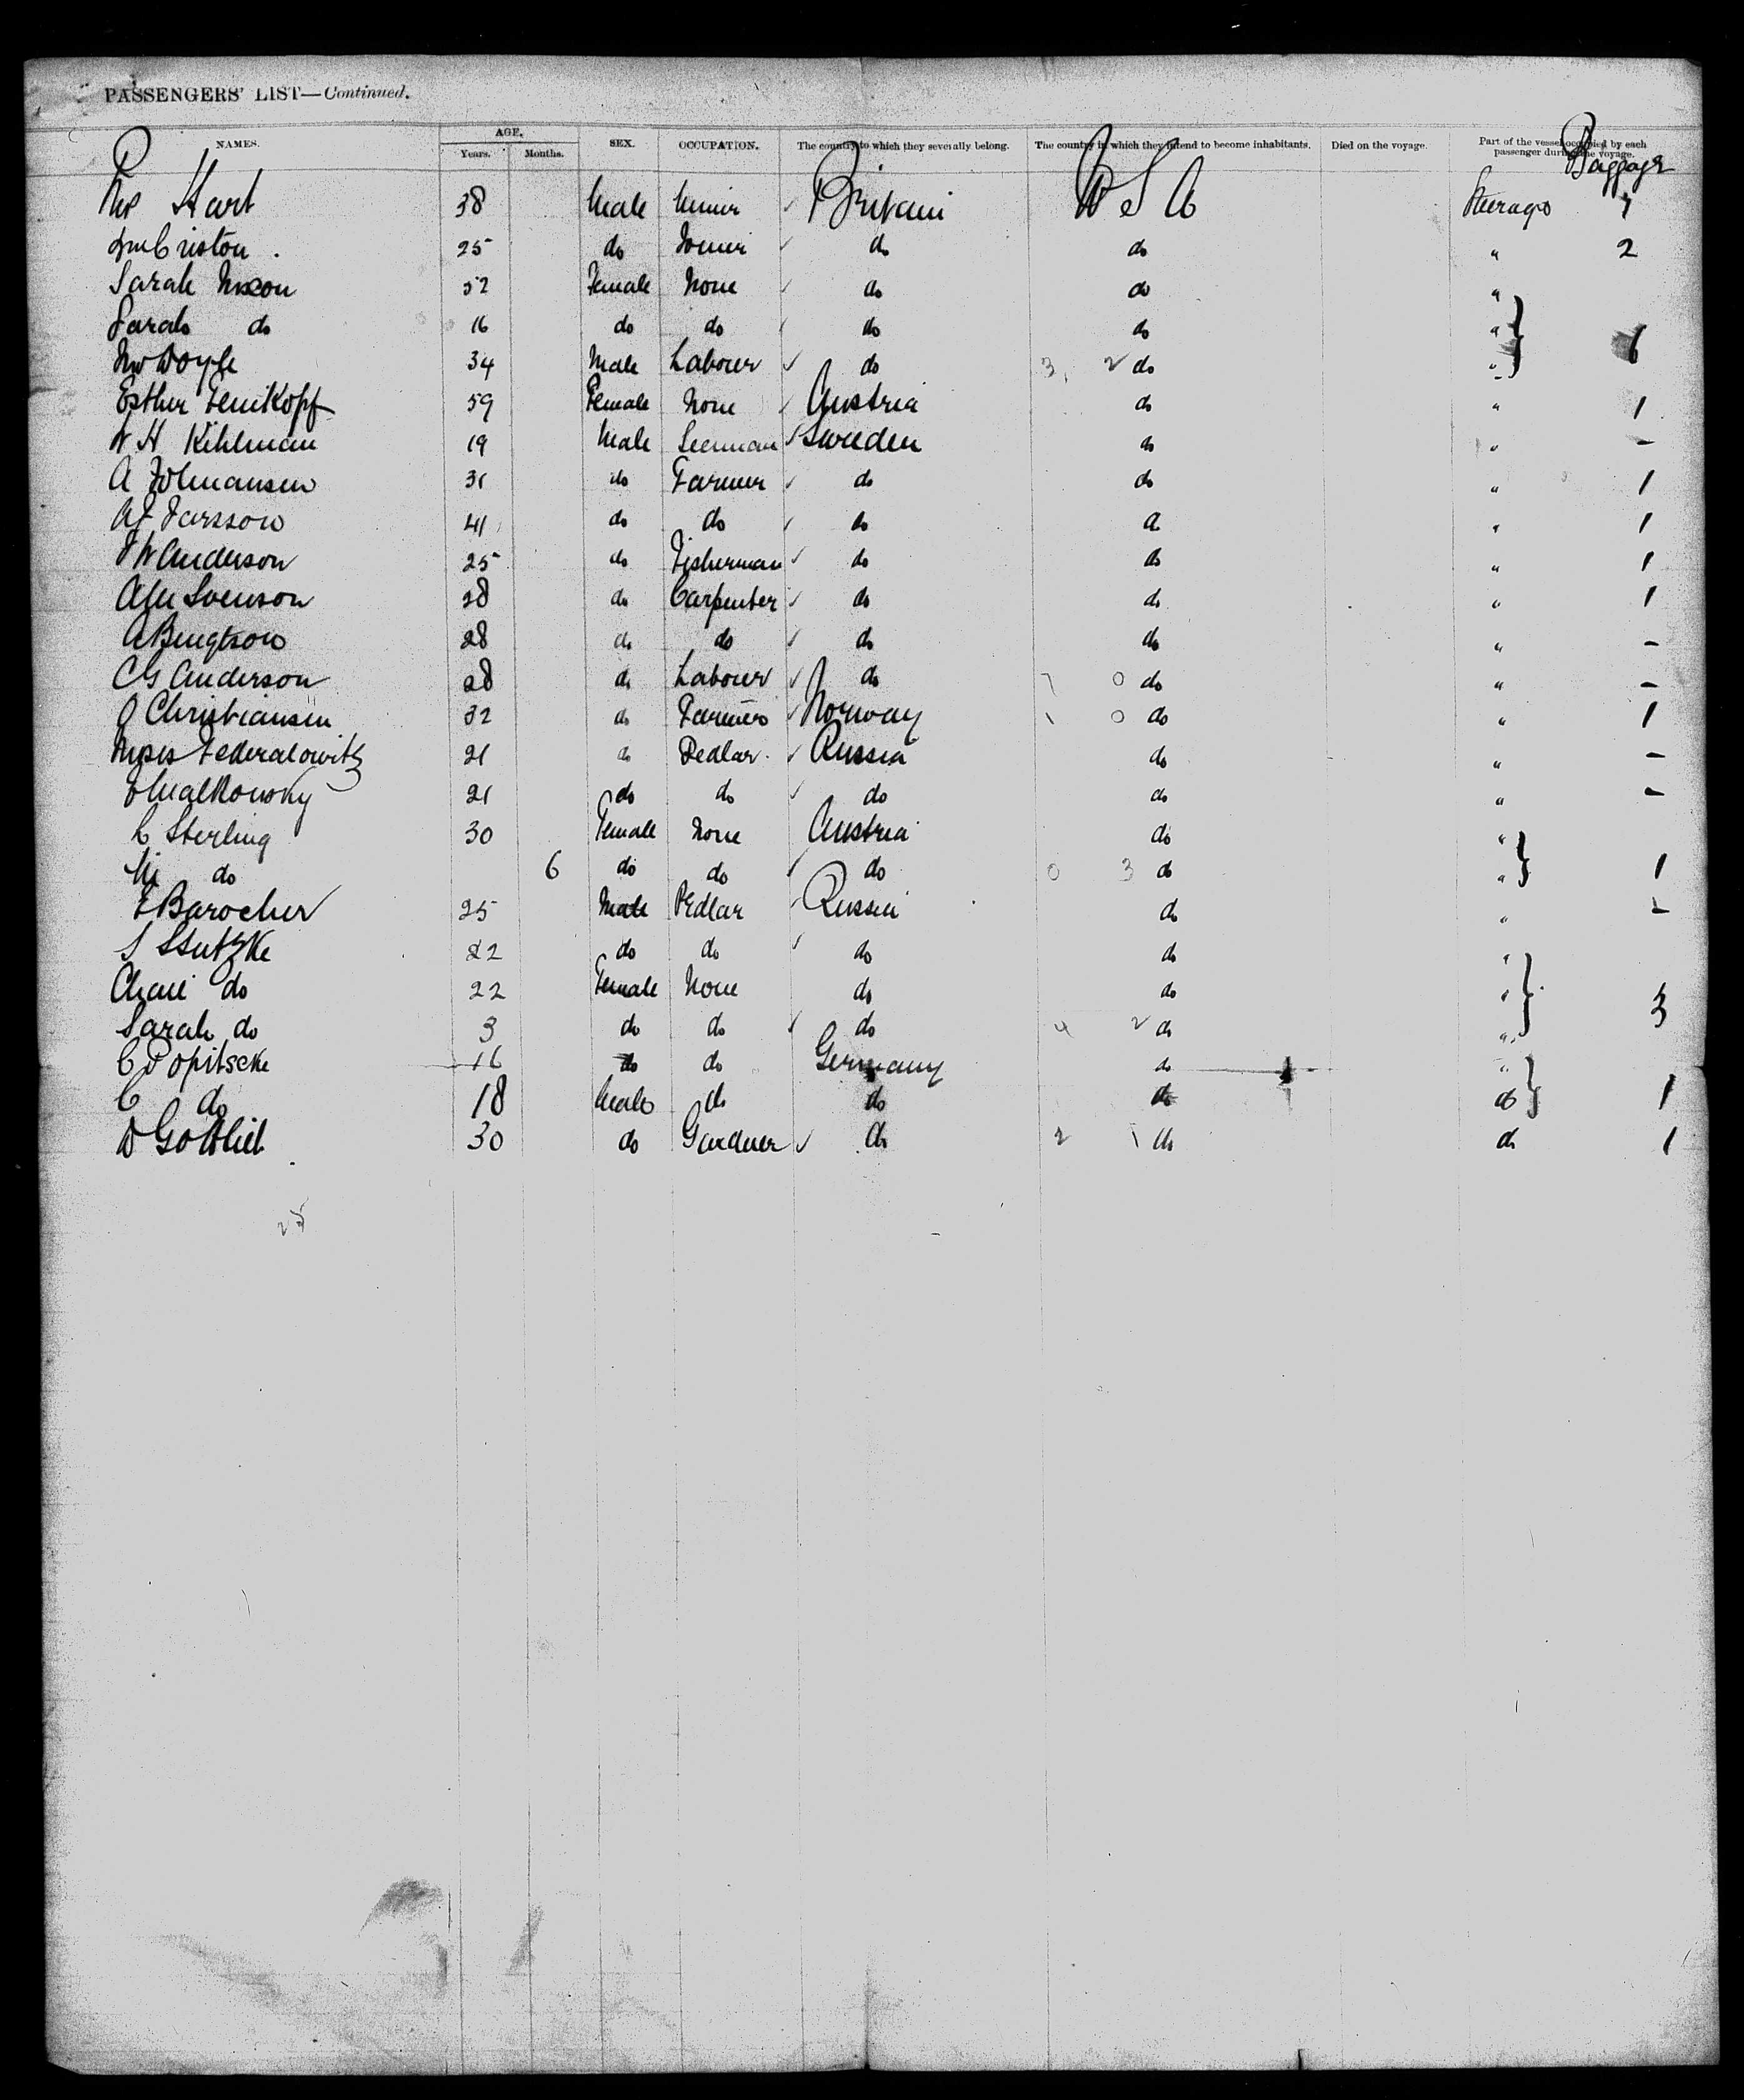 PASSENGERS' LIST—Continued.
NAMES. AGE. Years. Months. SEX. OCCUPATION. The country to which they severally belong. The country in which they intend to become inhabitants. Died on the voyage. Part of the vessel occupied by each passenger during the voyage. Baggage
Hart 38 Male Miner Britain U S A Steerage 1
25 do do do " 2
Sarah Nixon 52 Female None do do "
Sarah do 16 do do do do "
Doyle 34 Male Labourer do 3 2 do "
Esther 59 Female None Austria do " 1
W H Kihlman 19 Male Seeman Sweden do " -
A 31 do Farmer do do " 1
41 do do do do " 1
J W Anderson 25 do Fisherman do do " 1
Svenson 28 do Carpenter do do " 1
A Bengtson 28 do do do do " -
C G Anderson 28 do Labourer do 7 0 do " -
O Christiansen 32 do Farmers Norway 1 0 do " 1
Moses Federalowitz 21 do Pedlar Russia do " -
21 do do do do " -
L Sterling 30 Female None Austria do "
do 6 do do do 0 3 do " 1
E Barocher 25 Male Pedlar Russia do " -
S Slutzke 22 do do do do "
do 22 Female None do do " 3
Sarah do 3 do do do 4 2 do "
C Popitscke 16 do do Germany do "
C do 18 Male do do do do 1
D Gottlieb 30 do Gardener do 2 1 do do 1
25